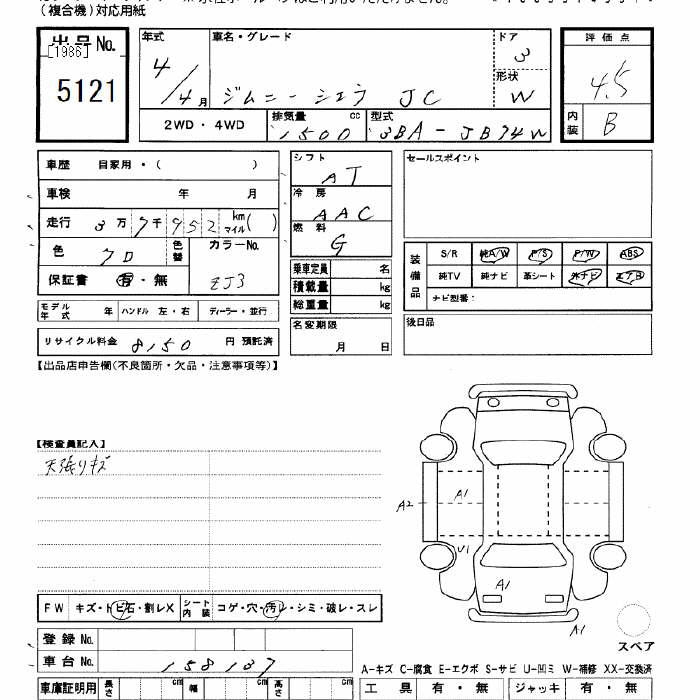 (複合機)対応用紙
出品No.
[1986]
5121
年式 4/4月
車名・グレード ジムニーシエラ JC
ドア 3
形状 W
2WD・4WD
排気量 1500 cc
型式 3BA-JB74W
評価点 4.5
内装 B
車歴 自家用・( )
車検 年 月
走行 3万7千952 km マイル( )
色 クロ 色替
カラーNo. ZJ3
保証書 有・無
モデル年式 年 ハンドル 左・右 ディーラー・並行
リサイクル料金 8150 円 預託済
シフト AT
冷房 AAC
燃料 G
乗車定員 名
積載量 kg
総重量 kg
名変期限
月 日
セールスポイント
装備品
S/R 純A/W P/S P/W ABS
純TV 純ナビ 革シート 外ナビ エアB
ナビ型番:
後日品
【出品店申告欄(不良箇所・欠品・注意事項等)】
【検査員記入】
天張りキズ
A2
A1
U1
A1
A1
スペア
FW キズ・トビ石・割レX シート内装 コゲ・穴・汚レ・シミ・破レ・スレ
登録No.
車台No. 158137
車庫証明用 長さ cm 幅 cm 高さ cm
A-キズ C-腐食 E-エクボ S-サビ U-凹ミ W-補修 XX-交換済
工具 有・無 ジャッキ 有・無